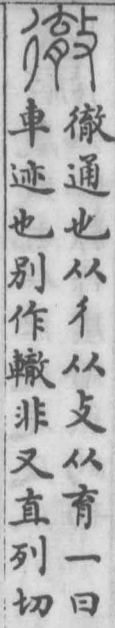 徹
徹通也从彳从攴从育一曰
車迹也别作轍非又直列切